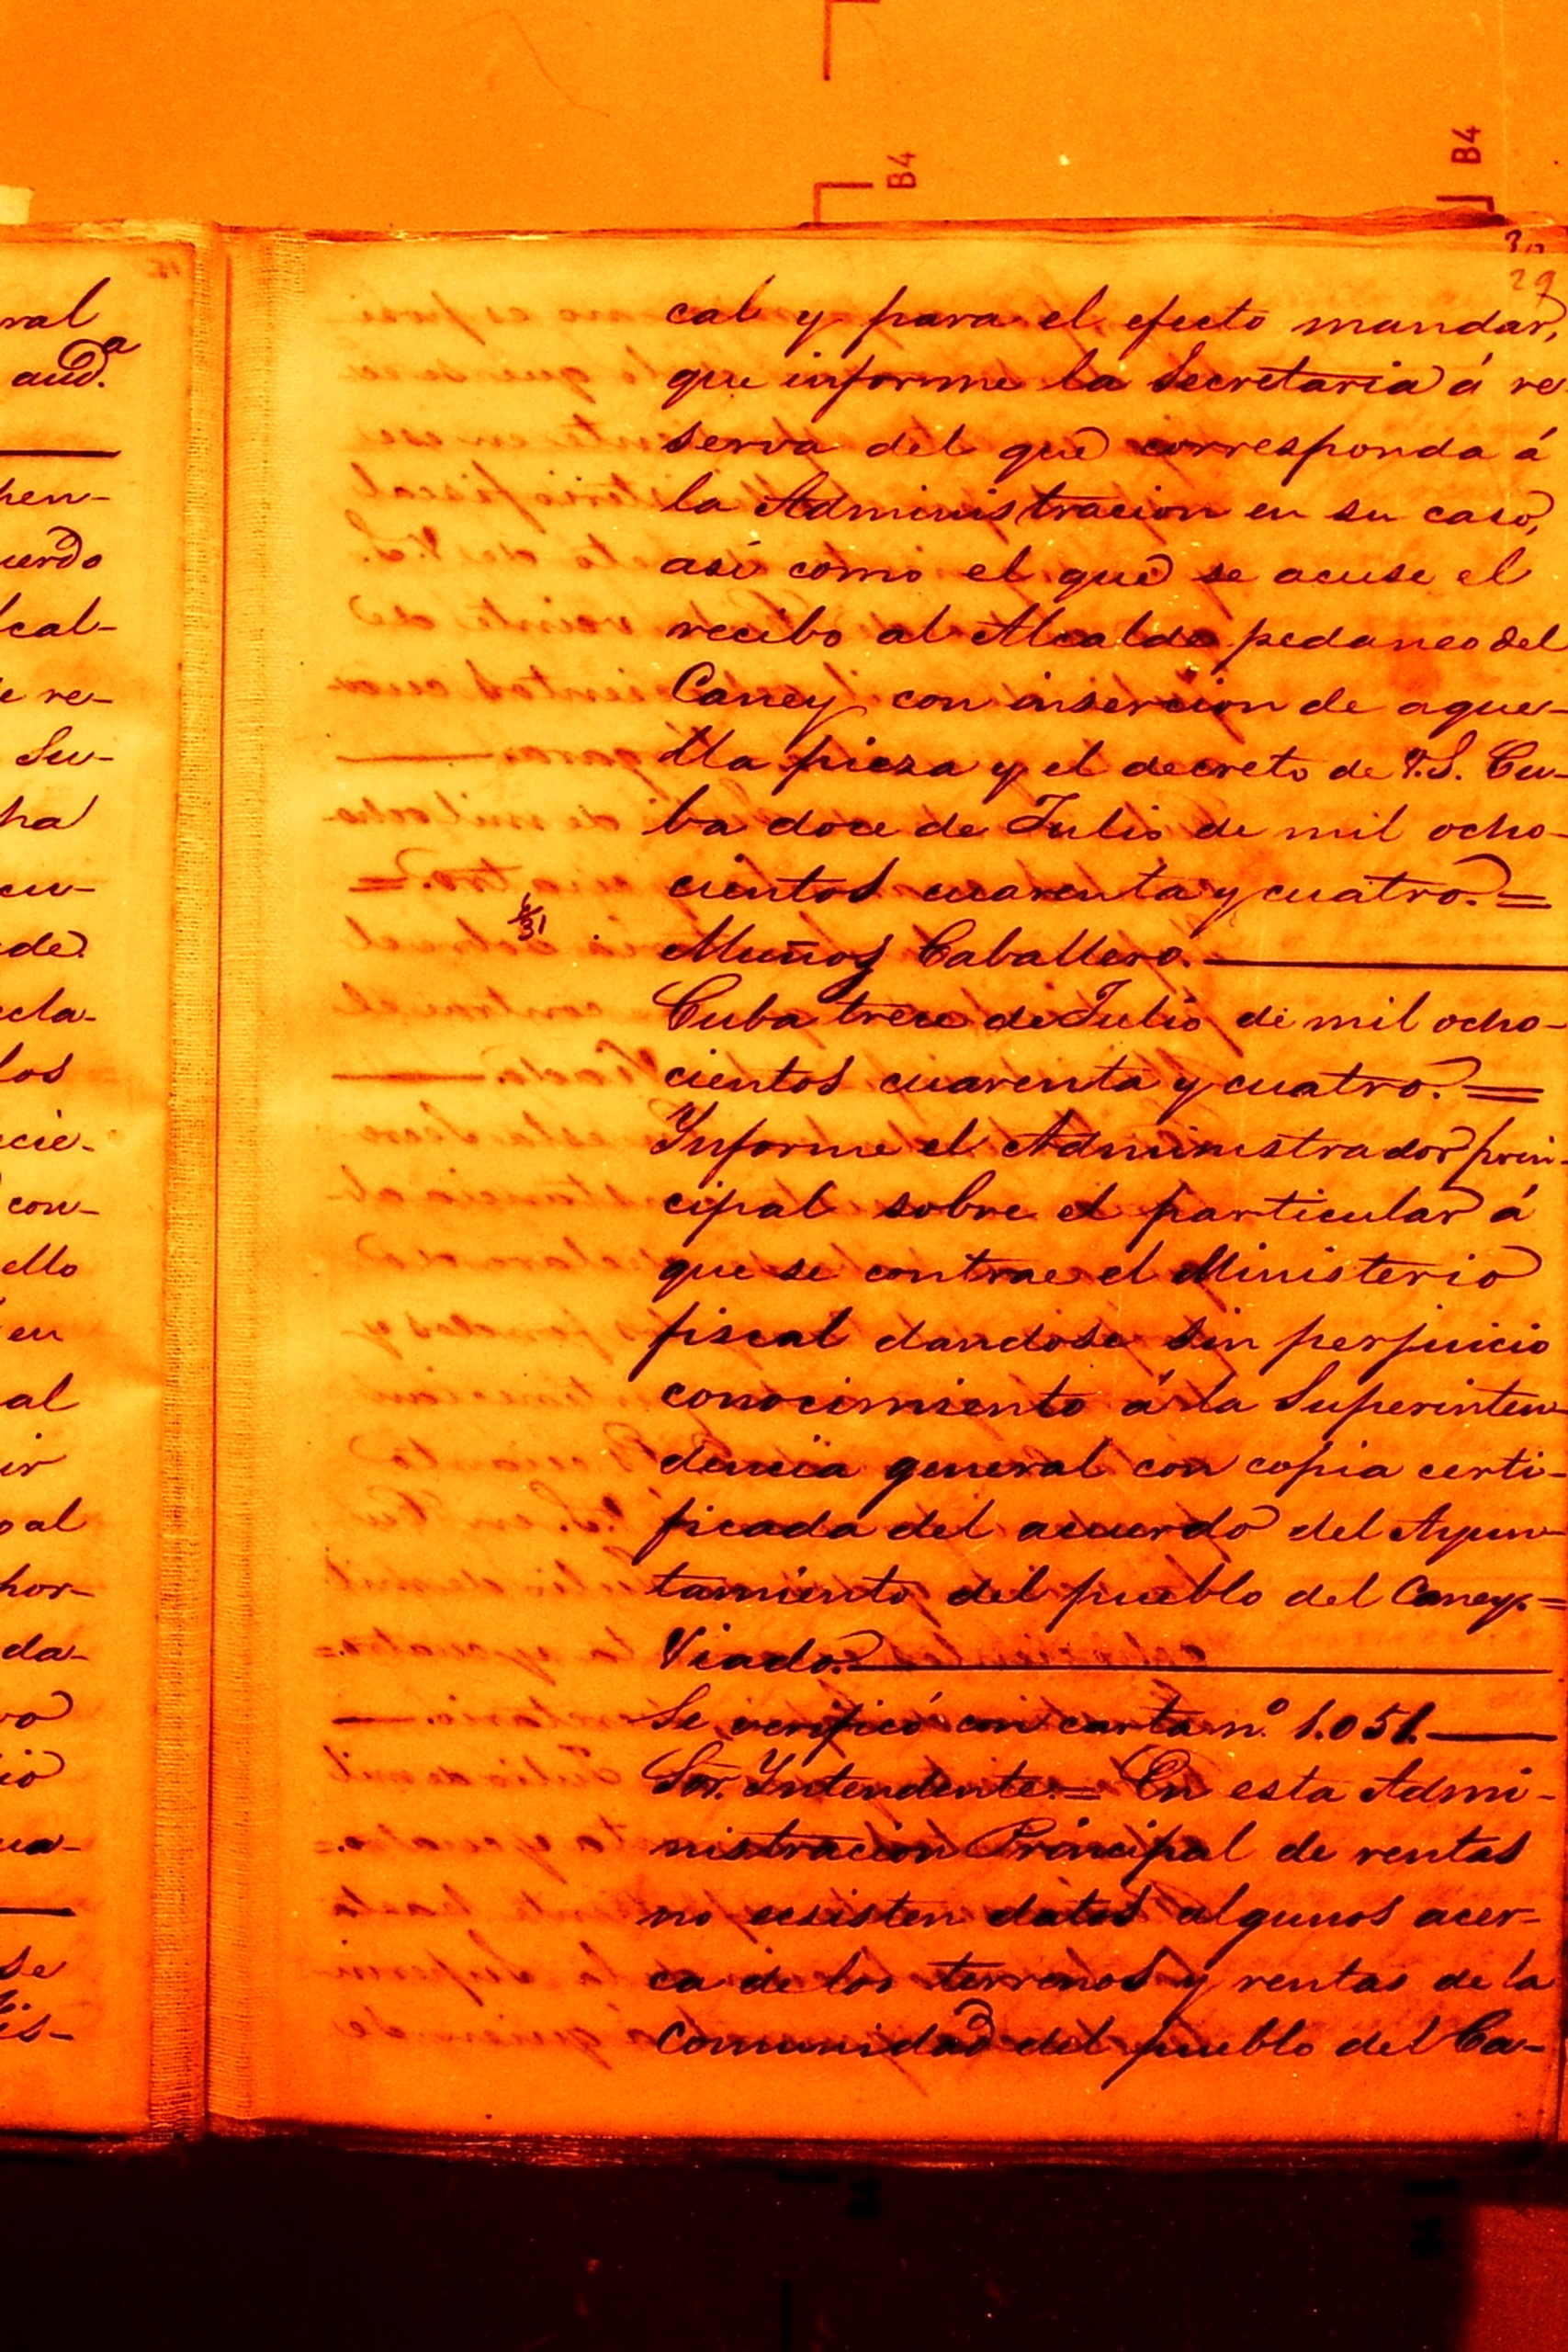 B4
B4
30
29
ral
aud.a
hen-
uerdo
lcal-
e re-
Su-
ha
cu-
de
cla-
los
cie-
con-
ello
en
al
ir
o al
hor-
da-
vo
io
ua-
se
is-
cal y para el efecto mandar,
que informe la Secretaria á re
serva del que corresponda á
la Administracion en su caso,
asi como el que se acuse el
recibo al Alcalde pedaneo del
Caney con insercion de aque-
lla pieza y el decreto de V.S. Cu-
ba doce de Julio de mil ocho-
cientos cuarenta y cuatro. =
Muñoz Caballero.
Cuba trece de Julio de mil ocho-
cientos cuarenta y cuatro. =
Informe el Administrador prin-
cipal sobre el particular á
que se contrae el Ministerio
fiscal dandose sin perjuicio
conocimiento á la Superinten-
dencia general con copia certi-
ficada del acuerdo del Ayun-
tamiento del pueblo del Caney. =
Viado.
Se verificó con carta n.º 1.051.
Sor. Intendente. = En esta Admi-
nistracion Principal de rentas
no ecsisten datos algunos acer-
ca de los terrenos y rentas de la
comunidad del pueblo del Ca-